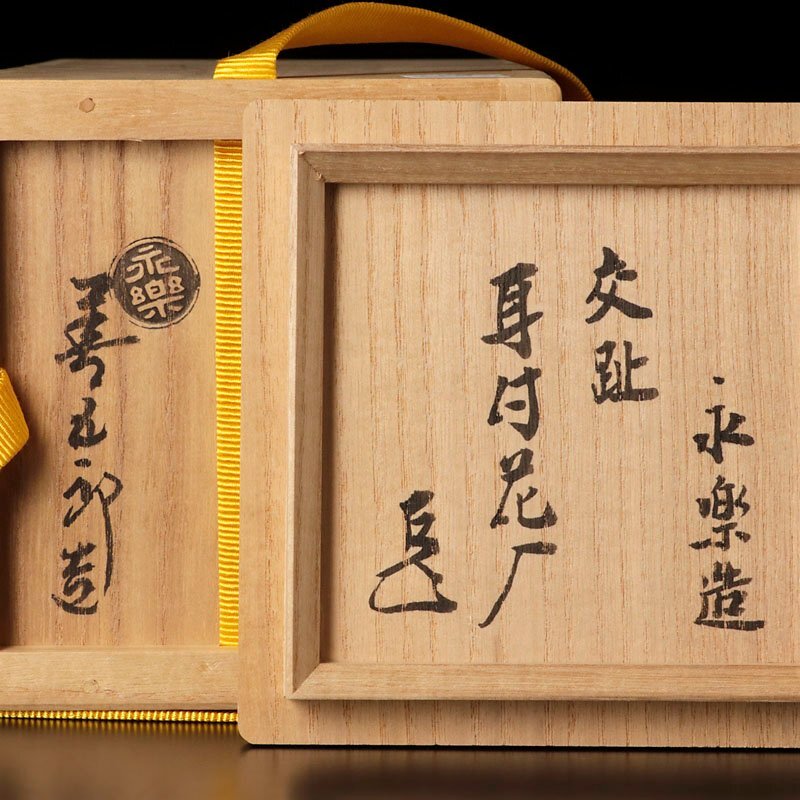 永樂造
交趾
耳付花厂
永樂
善五郎造